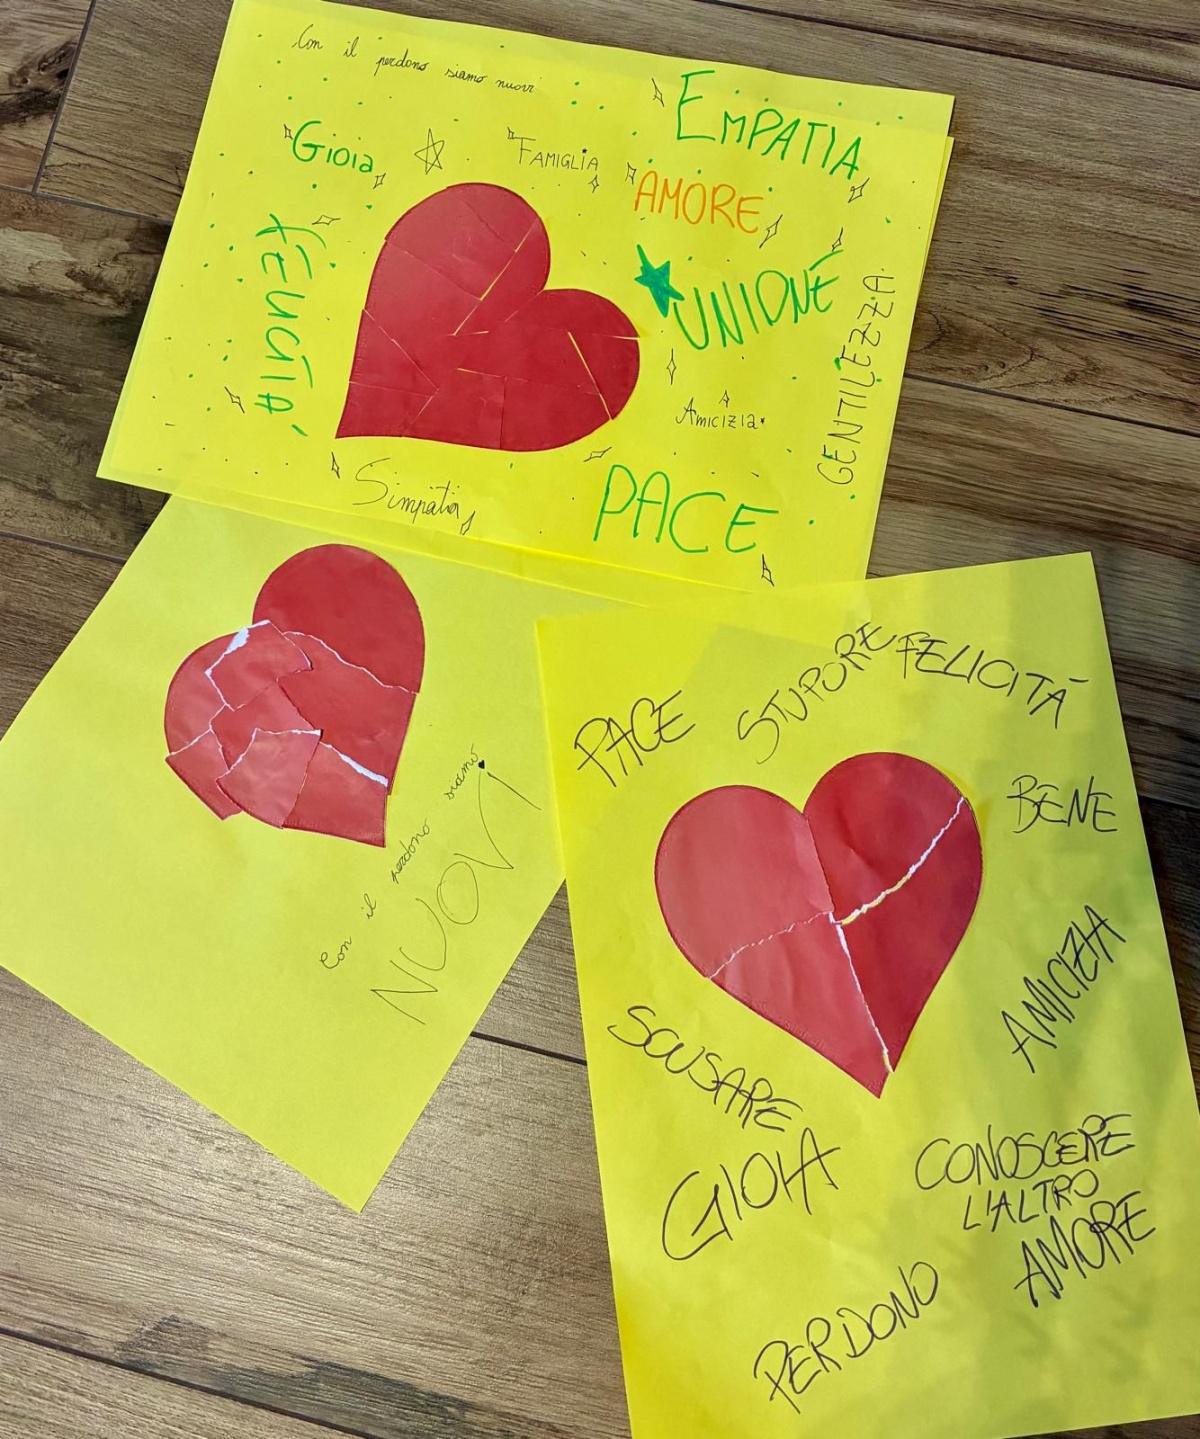 Con il perdono siamo nuovi
EMPATIA
Gioia
FAMIGLIA
AMORE
FELICITÀ
UNIONE
GENTILEZZA
Amicizia
Simpatia
PACE
Con il perdono siamo
NUOVI
PACE
STUPORE
FELICITÀ
BENE
AMICIZIA
SCUSARE
GIOIA
CONOSCERE
L'ALTRO
AMORE
PERDONO